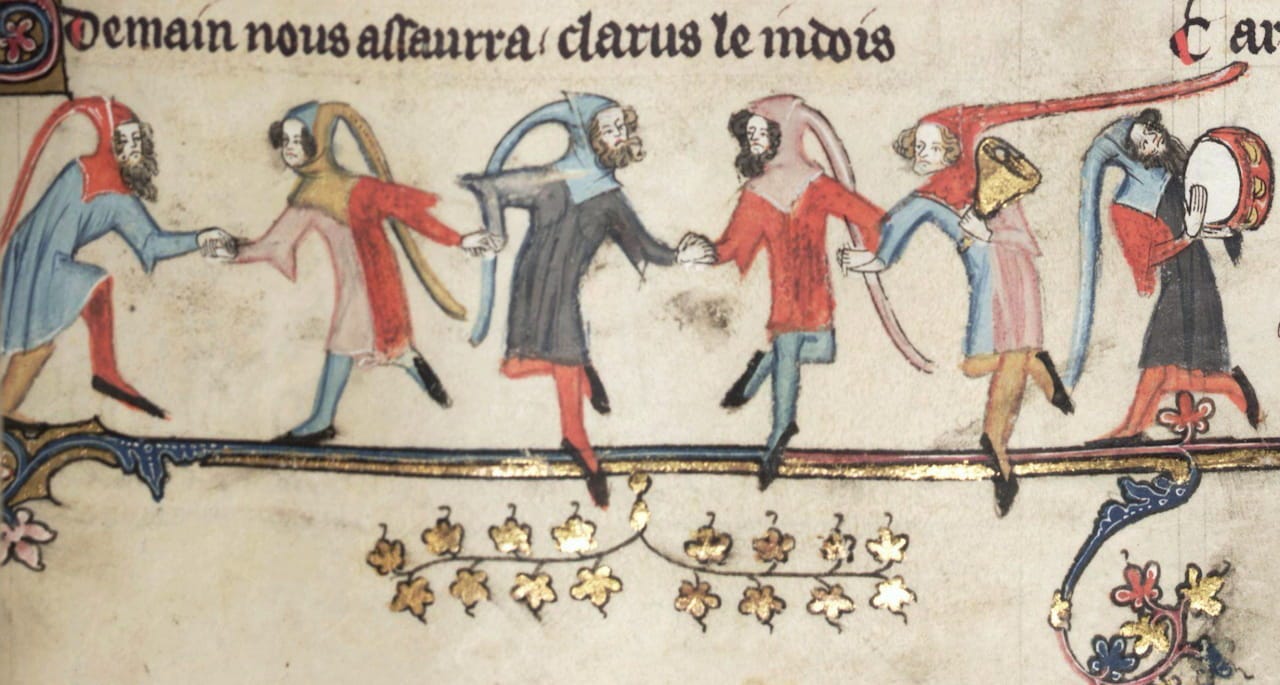 Demain nous assaurra clarus le indois
C ar